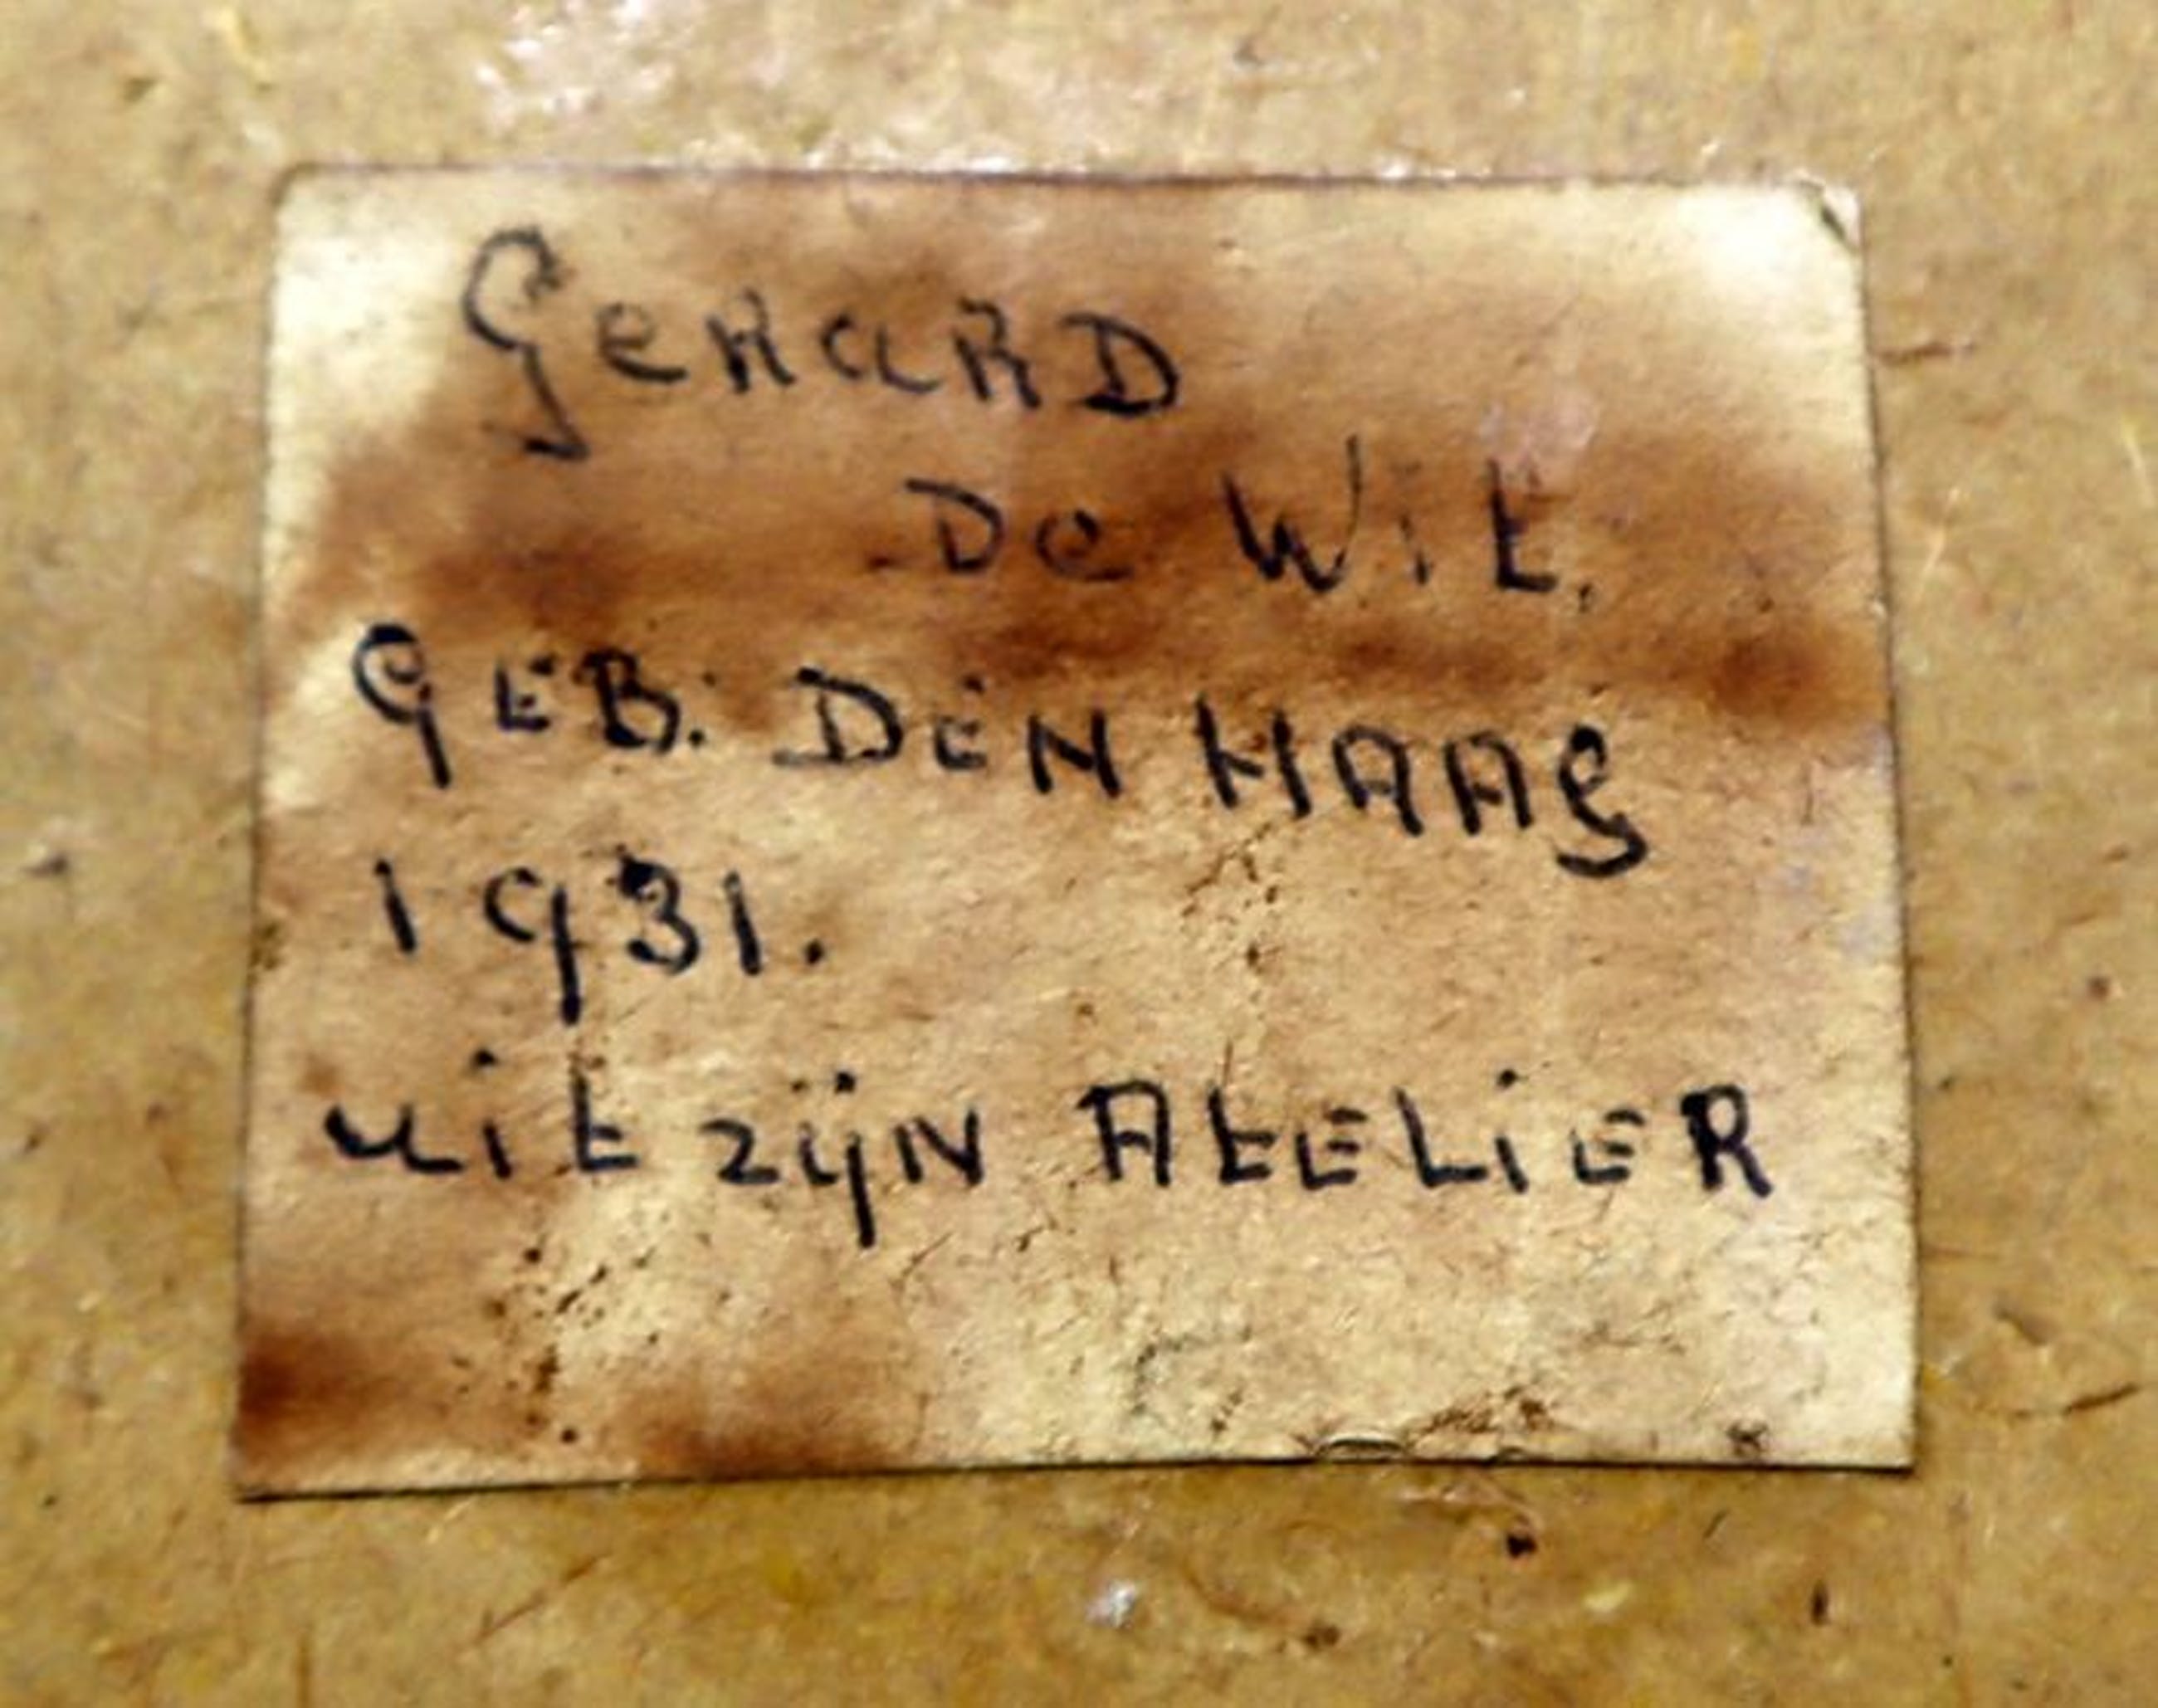 Gerard
De Wit.
GEB. DEN HAAG
1931.
uit zijn ATELIER